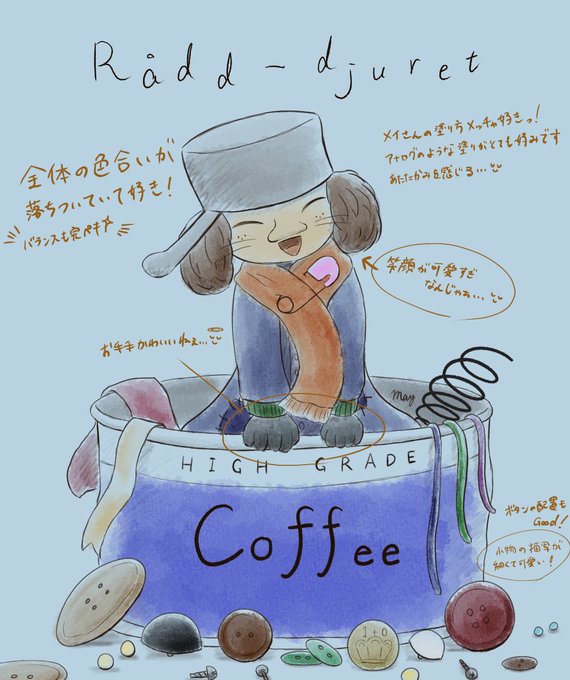 Rådd-djuret
メイさんの塗り方メッチャ好きっ!
アナログのような塗りがとても好みです
あたたかみを感じる...
全体の色合いが
落ちついていて好き!
バランスも完ペキ
笑顔が可愛すぎ
なんじゃろ...
お手手かわいいねぇ...
May
HIGH GRADE
Coffee
ボタンの配置も
Good!
小物の描写が
細くて可愛い!
1+0